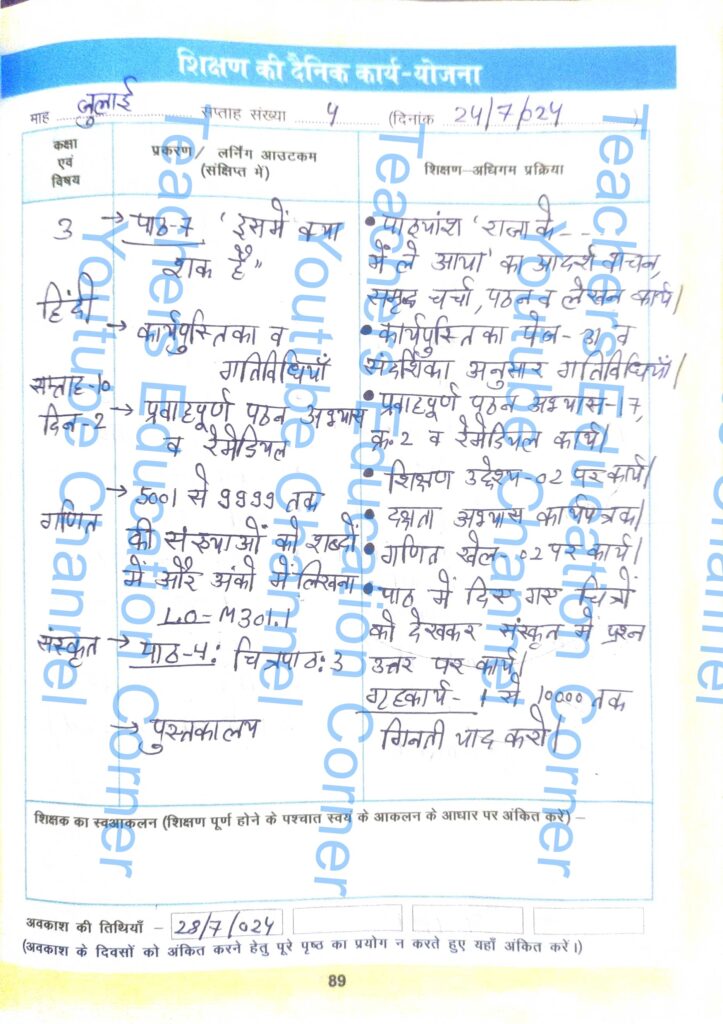 शिक्षण की दैनिक कार्य-योजना
माह जुलाई सप्ताह संख्या 4 (दिनांक 24/7/024)
कक्षा एवं विषय
प्रकरण/ लर्निंग आउटकम (संक्षिप्त में)
शिक्षण–अधिगम प्रक्रिया
3
हिंदी
सप्ताह-10
दिन-2
→ पाठ-7 'इसमें क्या
शक है"
→ कार्यपुस्तिका व
गतिविधियाँ
→ प्रवाहपूर्ण पठन अभ्यास
व रेमेडियल
• पाठ्यांश 'राजा के - -
में ले आया' का आदर्श वाचन,
समृद्ध चर्चा, पठन व लेखन कार्य|
• कार्यपुस्तिका पेज- 31 व
संदर्शिका अनुसार गतिविधियाँ|
• प्रवाहपूर्ण पठन अभ्यास-17,
क्र. 2 व रेमेडियल कार्य|
गणित
→ 5001 से 9999 तक
की संख्याओं को शब्दों
में और अंको में लिखना
LO-M301.1
• शिक्षण उद्देश्य-02 पर कार्य|
• दक्षता अभ्यास कार्यपत्रक|
• गणित खेल-02 पर कार्य|
संस्कृत
→ पाठ-4: चित्रपाठ: 3
→ पुस्तकालय
• पाठ में दिए गए चित्रों
को देखकर संस्कृत में प्रश्न
उत्तर पर कार्य|
गृहकार्य - 1 से 10000 तक
गिनती याद करो|
शिक्षक का स्वआकलन (शिक्षण पूर्ण होने के पश्चात स्वयं के आकलन के आधार पर अंकित करें) –
अवकाश की तिथियाँ – 28/7/024
(अवकाश के दिवसों को अंकित करने हेतु पूरे पृष्ठ का प्रयोग न करते हुए यहाँ अंकित करें।)
89
Teachers Education Corner
Youtube Channel
Teachers Education Corner
Youtube Channel
Teachers Education Corner
Youtube Channel